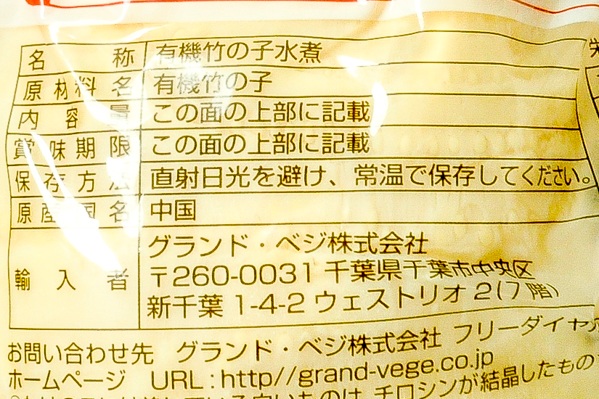 名称 有機竹の子水煮
原材料名 有機竹の子
内容量 この面の上部に記載
賞味期限 この面の上部に記載
保存方法 直射日光を避け、常温で保存してください。
原産国名 中国
輸入者 グランド・ベジ株式会社
〒260-0031 千葉県千葉市中央区
新千葉 1-4-2 ウェストリオ2(7階)
お問い合わせ先 グランド・ベジ株式会社 フリーダイヤ
ホームページ URL:http//grand-vege.co.jp
白いものは、チロシンが結晶したもの
栄